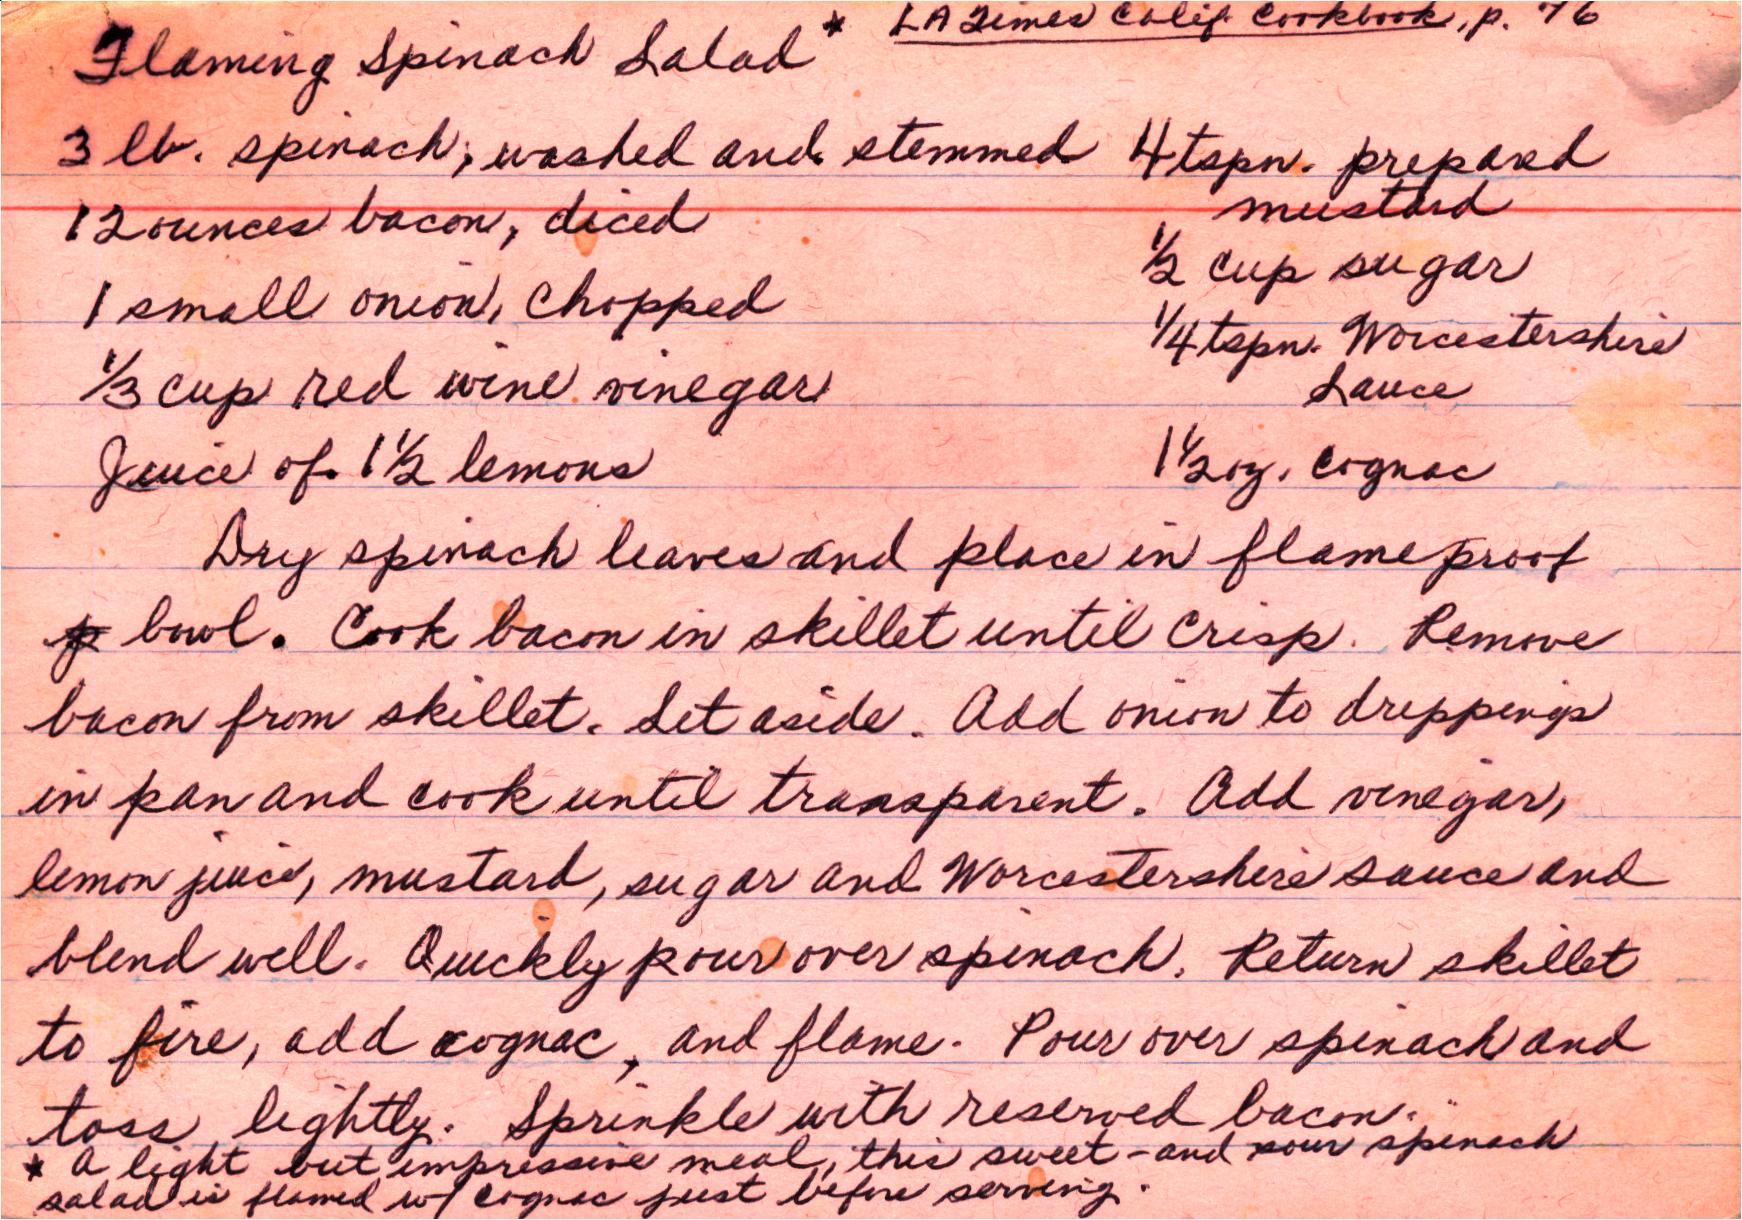 Flaming Spinach Salad* LA Times Calif. Cookbook, p. 76
3 lb. spinach, washed and stemmed
12 ounces bacon, diced
1 small onion, chopped
1/3 cup red wine vinegar
Juice of 1 1/2 lemons
4 tspn. prepared
mustard
1/2 cup sugar
1/4 tspn. Worcestershire
Sauce
1 1/2 oz. cognac
Dry spinach leaves and place in flameproof
bowl. Cook bacon in skillet until crisp. Remove
bacon from skillet. Set aside. Add onion to drippings
in pan and cook until transparent. Add vinegar,
lemon juice, mustard, sugar and Worcestershire sauce and
blend well. Quickly pour over spinach. Return skillet
to fire, add cognac, and flame. Pour over spinach and
toss lightly. Sprinkle with reserved bacon.
* A light but impressive meal, this sweet-and sour spinach
salad is flamed w/ cognac just before serving.